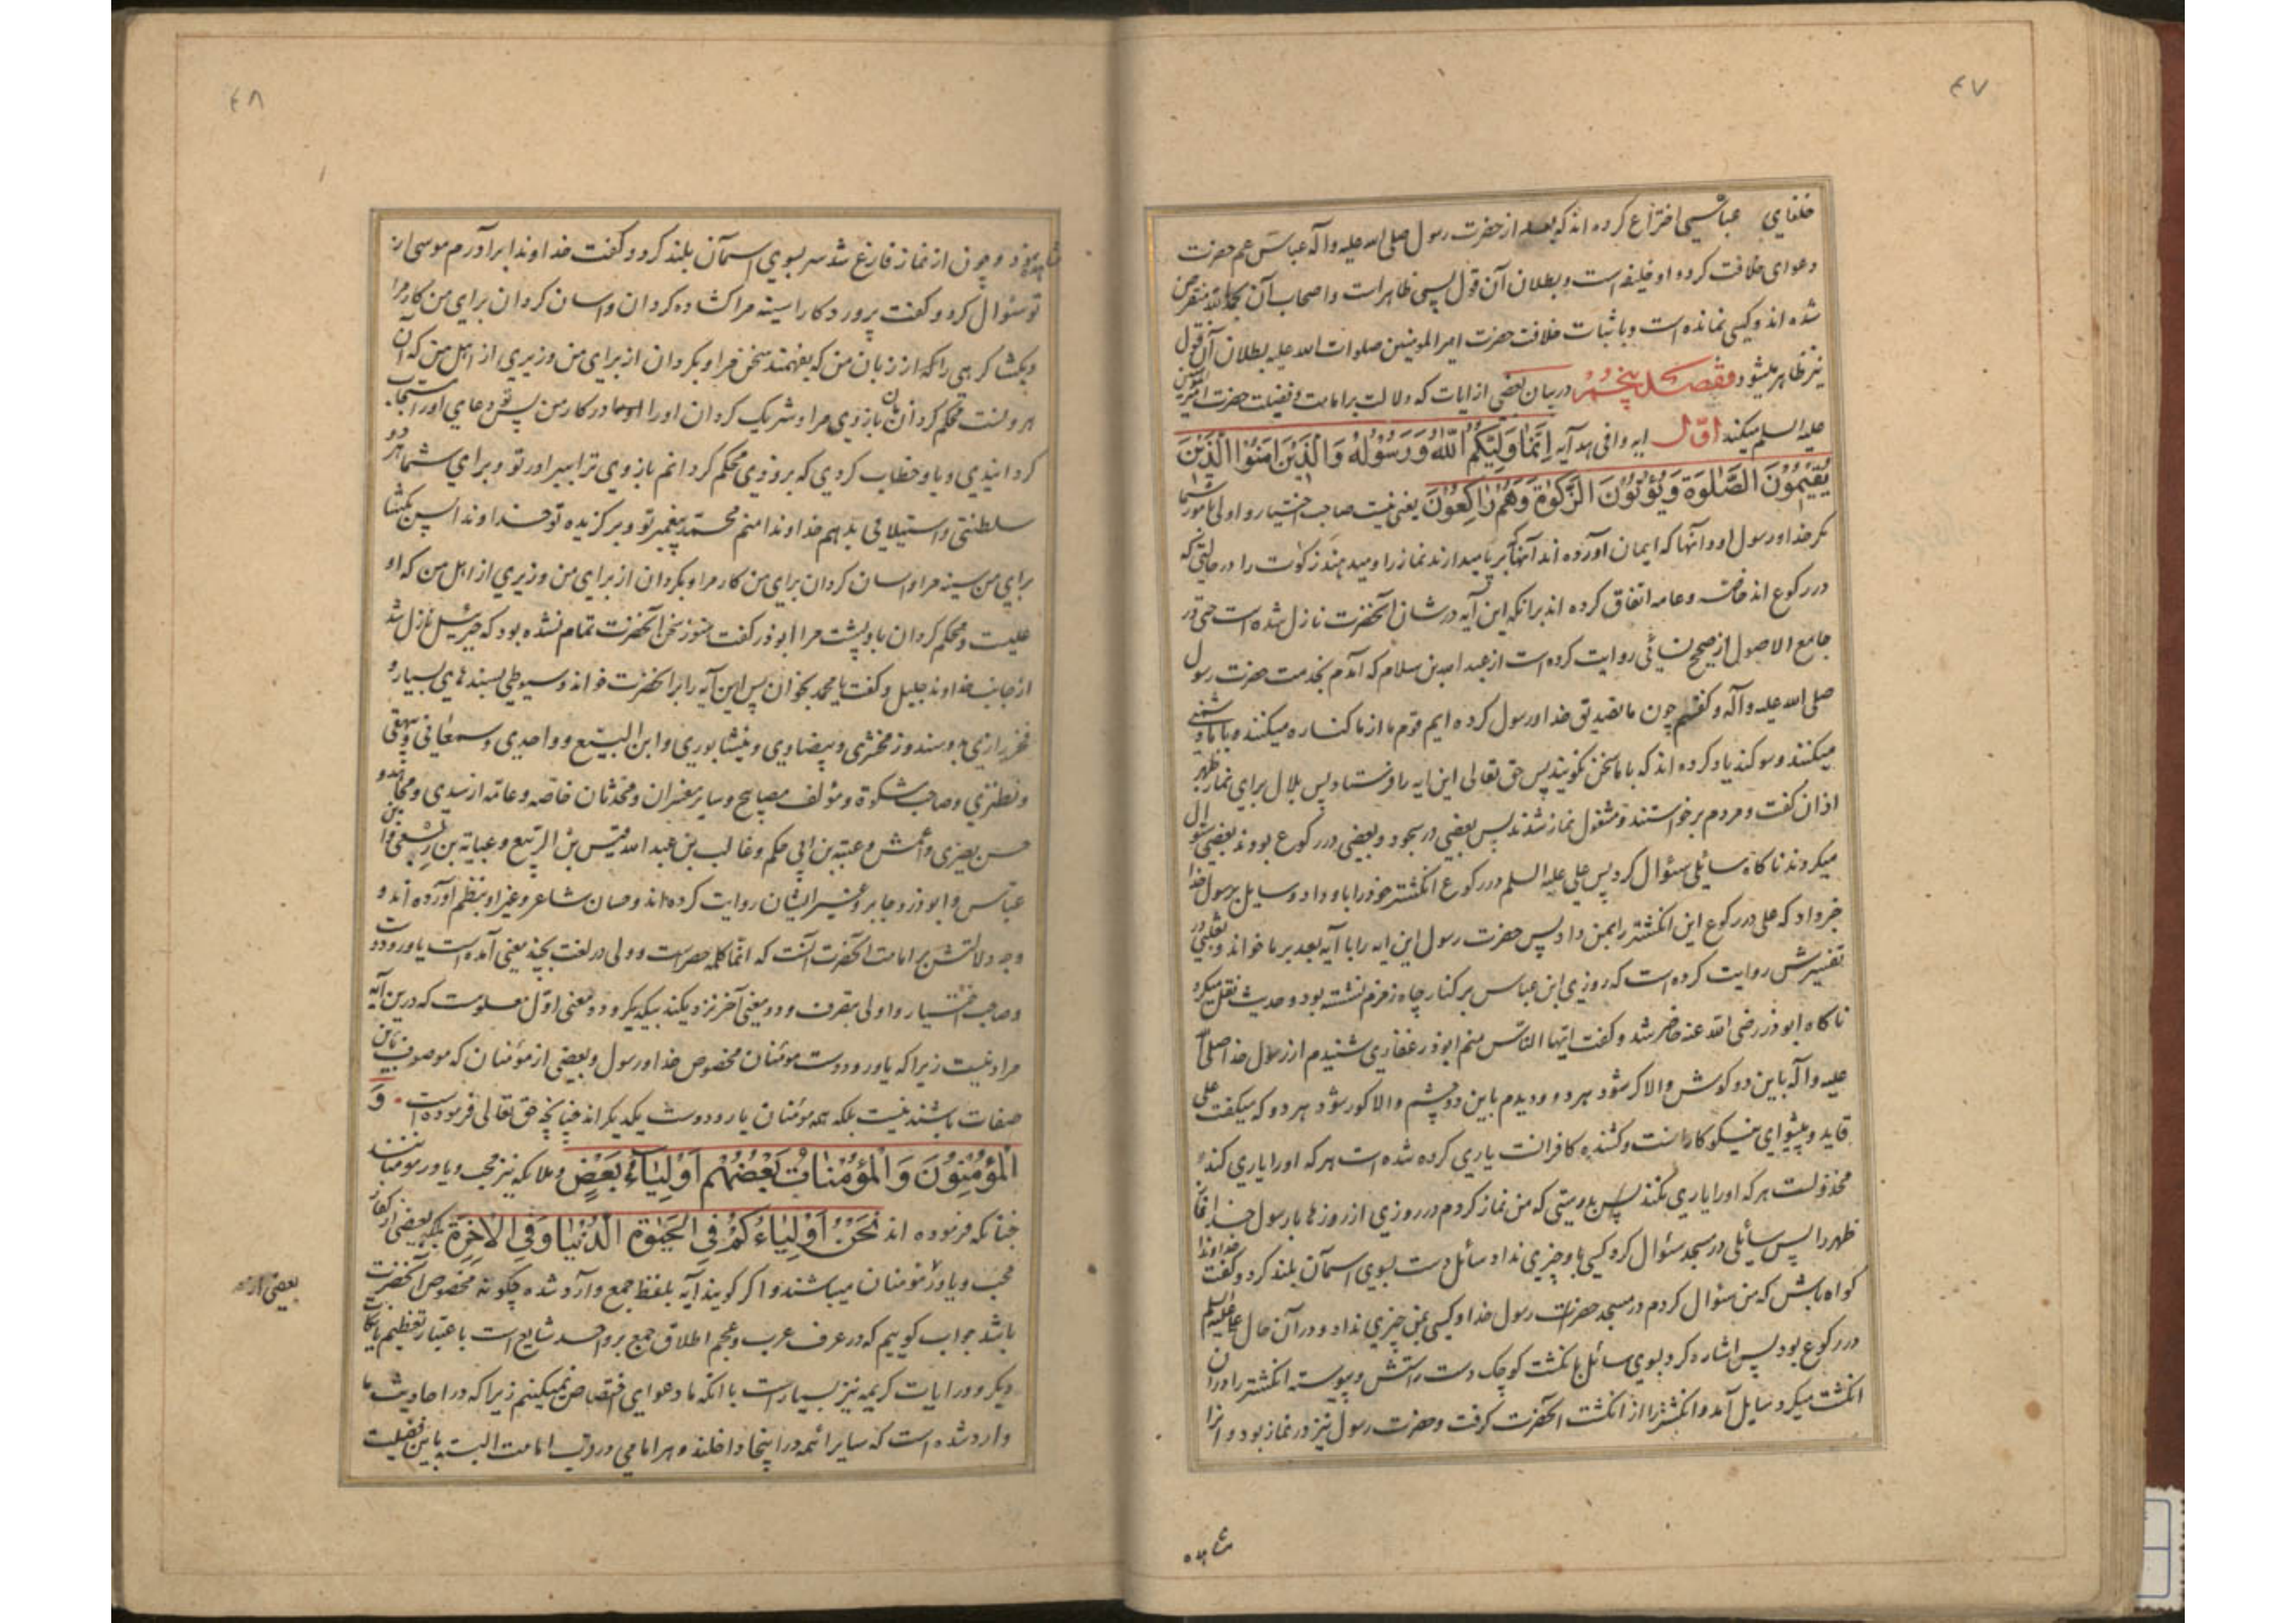 ۴۷
خلفای عباسی اختراع کرده اند که بعد از حضرت رسول صلی الله علیه وآله عباس عم حضرت
دعوای خلافت کرده او خلیفه است و بطلان آن قول بسی ظاهر است و اصحاب آن بحمد الله منقرض
شده اند و کسی نمانده است و باثبات خلافت حضرت امیر المومنین صلوات الله علیه بطلان آن قول
نیز ظاهر میشود مقصد پنجم در بیان بعضی از ایات که دلالت بر امامت و فضیلت حضرت امیر المومنین
علیه السلم میکند اوّل ایه وافی هدایه اِنَّمَا وَلِیُّکُمُ اللّٰهُ وَ رَسُوْلُهُ وَ الَّذِیْنَ اٰمَنُوا الَّذِیْنَ
یُقِیْمُوْنَ الصَّلٰوةَ وَ یُؤْتُوْنَ الزَّکٰوةَ وَ هُمْ رٰاکِعُوْنَ یعنی نیست صاحب اختیار و اولی بامور شما
مکر خدا و رسول او و آنها که ایمان آورده اند آنها که برپا میدارند نماز را و میدهند زکوت را در حالتی که
در رکوع اند خاصه و عامه اتفاق کرده اند برانکه این آیه در شان آنحضرت نازل شده است حتی در
جامع الاصول از صحیح نسائی روایت کرده است از عبد الله بن سلام که آمدم بخدمت حضرت رسول
صلی الله علیه وآله و کفتم چون ما تصدیق خدا و رسول کرده ایم قوم ما از ما کناره میکنند و با ما دشمنی
میکنند و سوکند یاد کرده اند که با ما سخن نکویند پس حق تعالی این ایه را فرستاد پس بلال برای نماز ظهر
اذان کفت و مردم برخواستند و مشغول نماز شدند پس بعضی در سجود و بعضی در رکوع بودند بعضی سؤال
میکردند ناکاه سایلی سئوال کرد پس علی علیه السلم در رکوع انکشتر خود را باو داد و سایل برسول خدا
خبر داد که علی در رکوع این انکشتر را بمن داد پس حضرت رسول این ایه را با آیه بعد بر ما خواند و ثعلبی در
تفسیرش روایت کرده است که روزی ابن عباس بر کنار چاه زمزم نشسته بود و حدیث نقل میکرد
ناکاه ابوذر رضی الله عنه حاضر شد و کفت ایّها النّاس منم ابوذر غفاری شنیدم از رسول خدا صلی الله
علیه وآله باین دو کوش والا کر شود هر دو و دیدم باین دو چشم والا کور شود هر دو که میکفت علی
قاید و پیشوای نیکو کارانست و کشنده کافرانست یاری کرده شده است هر که او را یاری کند و
مخذولست هر که او را یاری نکند پس بدرستی که من نماز کردم در روزی از روزها با رسول خدا نماز
ظهر را پس سائلی در مسجد سئوال کرد کسی باو چیزی نداد سائل دست بسوی اسمان بلند کرد و کفت خداوندا
کواه باش که من سئوال کردم در مسجد حضرت رسول خدا و کسی بمن چیزی نداد و در آن حال علی علیه السلم
در رکوع بود پس اشاره کرد بسوی سائل بانکشت کوچک دست راستش و پیوسته انکشتر را در ان
انکشت میکرد سایل آمد و انکشتر را از انکشت انحضرت کرفت و حضرت رسول نیز در نماز بود و انرا
مشاهده
۴۸
مشاهده نمود و چون از نماز فارغ شد سر بسوی اسمان بلند کرد و کفت خداوندا برادرم موسی از
تو سئوال کرد و کفت پروردکارا سینه مرا کشاده کردان و اسان کردان برای من کار مرا
و بکشا کرهی را که از زبان من که بفهمند سخن مرا و بکردان از برای من وزیری از اهل من که آن
هرونست محکم کردان بازوی مرا و شریک کردان او را در کار من پس تو دعای او را مستجاب
کردانیدی و باو خطاب کردی که بزودی محکم کردانم بازوی ترا ببرادر تو و برای شما هر دو
سلطنتی و استیلائی بدهم خداوندا منم محمّد پیغمبر تو و برکزیده تو خداوندا پس بکشا
برای من سینه مرا و اسان کردان برای من کار مرا و بکردان از برای من وزیری از اهل من که او
علیست و محکم کردان باو پشت مرا ابوذر کفت هنوز سخن آنحضرت تمام نشده بود که جبرئیل نازل شد
از جانب خداوند جلیل و کفت یا محمد بخوان پس این آیه را برانحضرت خواند و سیوطی بسندهای بسیار و
فخر رازی بدو سند و زمخشری و بیضاوی و نیشابوری و ابن البیّع و واحدی و سمعانی و بیهقی
و نطنزی و صاحب مشکوة و مؤلف مصابیح و سایر مفسران و محدثان خاصّه و عامّه از سدی و مجاهد و
حسن بصری و اعمش و عتبه بن ابی حکم و غالب بن عبد الله و قیس بن الربیع و عبایة بن ربعی و ابن
عبّاس و ابوذر و جابر و غیر ایشان روایت کرده اند و حسان شاعر و غیر او بنظم آورده اند و
وجه دلالتش بر امامت انحضرت آنست که انّما کلمه حصر است و ولی در لغت بچند معنی آمده است یاور و دوست
و صاحب اختیار و اولی بتصرف و دو معنی آخر نزدیکند بیکدیکر و دو معنی اوّل معلومست که درین آیه
مراد نیست زیرا که یاور و دوست مومنان مخصوص خدا و رسول و بعضی از مؤمنان که موصوف باین
صفات باشند نیست بلکه همه مومنان یار و دوست یکدیکر اند چنانچه حق تعالی فرموده است وَ
الْمُؤْمِنُوْنَ وَ الْمُؤْمِنٰاتُ بَعْضُهُمْ اَوْلِیٰاءُ بَعْضٍ و ملائکه نیز محب و یاور مومنانند
چنانکه فرموده اند نَحْنُ اَوْلِیٰاءُکُمْ فِی الْحَیٰوةِ الدُّنْیٰا وَ فِی الْاٰخِرَةِ بلکه بعضی از کفار
محب و یاور مؤمنان میباشند و اکر کویند آیه بلفظ جمع وارد شده چکونه مخصوص آنحضرت
باشد جواب کوییم که در عرف عرب و عجم اطلاق جمع بر واحد شایع است باعتبار تعظیم یا نکات
دیکر و در ایات کریمه نیز بسیار است با انکه ما دعوای اختصاص نمیکنیم زیرا که در احادیث ما
وارد شده است که سایر ائمه در اینجا داخلند و هر امامی در قرب امامت البته باین فضیلت
بعضی از